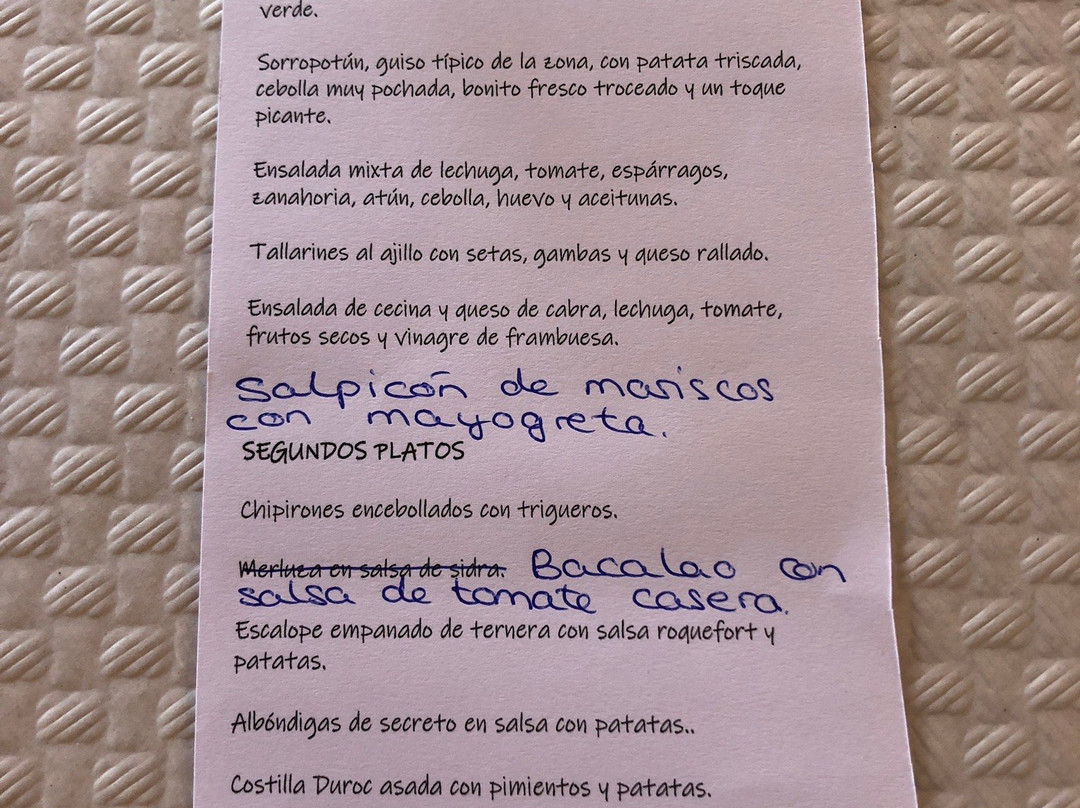 verde.
Sorropotún, guiso típico de la zona, con patata triscada,
cebolla muy pochada, bonito fresco troceado y un toque
picante.
Ensalada mixta de lechuga, tomate, espárragos,
zanahoria, atún, cebolla, huevo y aceitunas.
Tallarines al ajillo con setas, gambas y queso rallado.
Ensalada de cecina y queso de cabra, lechuga, tomate,
frutos secos y vinagre de frambuesa.
Salpicón de mariscos
con mayogreta.
SEGUNDOS PLATOS
Chipirones encebollados con trigueros.
Merluza en salsa de sidra. Bacalao con
salsa de tomate casera.
Escalope empanado de ternera con salsa roquefort y
patatas.
Albóndigas de secreto en salsa con patatas..
Costilla Duroc asada con pimientos y patatas.